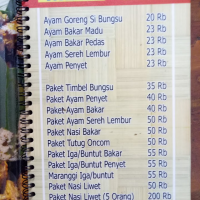 Ayam Goreng Si Bungsu 20 Rb
Ayam Bakar Madu 23 Rb
Ayam Bakar Pedas 23 Rb
Ayam Sereh Lembur 23 Rb
Ayam Penyet 23 Rb
Paket Timbel Bungsu 35 Rb
Paket Ayam Penyet 40 Rb
Paket Ayam Bakar 40 Rb
Paket Ayam Sereh Lembur 50 Rb
Paket Nasi Bakar 50 Rb
Paket Tutug Oncom 50 Rb
Paket Iga/Buntut Bakar 55 Rb
Paket Iga/Buntut Penyet 55 Rb
Maranggi Iga/buntut 55 Rb
Paket Nasi Liwet 50 Rb
Paket Nasi Liwet (5 Orang) 200 Rb